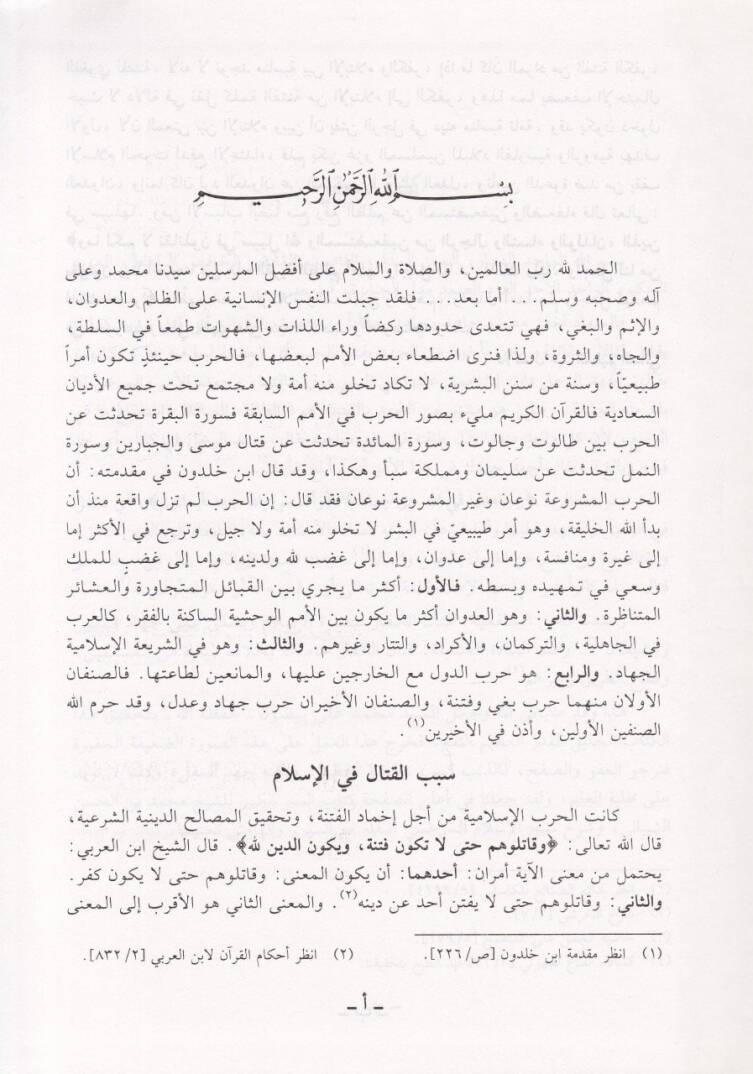 بسم الله الرحمن الرحيم
الحمد لله رب العالمين، والصلاة والسلام على أفضل المرسلين سيدنا محمد وعلى
آله وصحبه وسلم... أما بعد... فلقد جبلت النفس الإنسانية على الظلم والعدوان،
والإثم والبغي، فهي تتعدى حدودها ركضاً وراء اللذات والشهوات طمعاً في السلطة،
والجاه، والثروة، ولذا فنرى اضطعاء بعض الأمم لبعضها، فالحرب حينئذٍ تكون أمراً
طبيعيّاً، وسنة من سنن البشرية، لا تكاد تخلو منه أمة ولا مجتمع تحت جميع الأديان
السعادية فالقرآن الكريم مليء بصور الحرب في الأمم السابقة فسورة البقرة تحدثت عن
الحرب بين طالوت وجالوت، وسورة المائدة تحدثت عن قتال موسى والجبارين وسورة
النمل تحدثت عن سليمان ومملكة سبأ وهكذا، وقد قال ابن خلدون في مقدمته: أن
الحرب المشروعة نوعان وغير المشروعة نوعان فقد قال: إن الحرب لم تزل واقعة منذ أن
بدأ الله الخليقة، وهو أمر طيبيعيّ في البشر لا تخلو منه أمة ولا جيل، وترجع في الأكثر إما
إلى غيرة ومنافسة، وإما إلى عدوان، وإما إلى غضب لله ولدينه، وإما إلى غضبٍ للملك
وسعي في تمهيده وبسطه. فالأول: أكثر ما يجري بين القبائل المتجاورة والعشائر
المتناظرة. والثاني: وهو العدوان أكثر ما يكون بين الأمم الوحشية الساكنة بالفقر، كالعرب
في الجاهلية، والتركمان، والأكراد، والتتار وغيرهم. والثالث: وهو في الشريعة الإسلامية
الجهاد. والرابع: هو حرب الدول مع الخارجين عليها، والمانعين لطاعتها. فالصنفان
الأولان منهما حرب بغي وفتنة، والصنفان الأخيران حرب جهاد وعدل، وقد حرم الله
الصنفين الأولين، وأذن في الأخيرين(١).
سبب القتال في الإسلام
كانت الحرب الإسلامية من أجل إخماد الفتنة، وتحقيق المصالح الدينية الشرعية،
قال الله تعالى: ﴿وقاتلوهم حتى لا تكون فتنة، ويكون الدين لله﴾. قال الشيخ ابن العربي:
يحتمل من معنى الآية أمران: أحدهما: أن يكون المعنى: وقاتلوهم حتى لا يكون كفر.
والثاني: وقاتلوهم حتى لا يفتن أحد عن دينه(٢). والمعنى الثاني هو الأقرب إلى المعنى
(١) انظر مقدمة ابن خلدون [ص/٢٢٦]. (٢) انظر أحكام القرآن لابن العربي [٨٣٢/٢].
ـ أ ـ